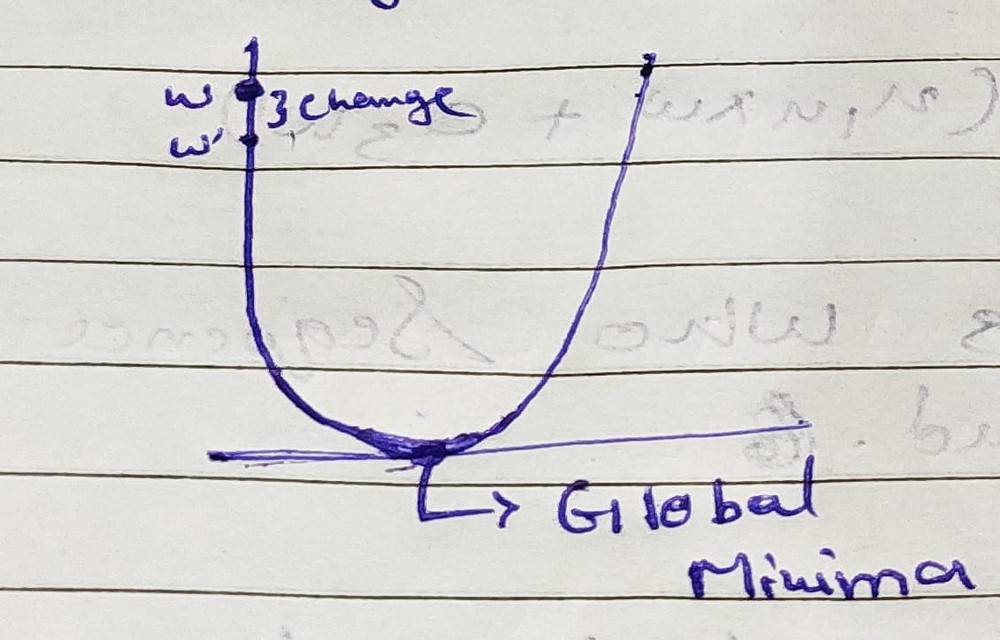 w } change
w'
Global
Minima